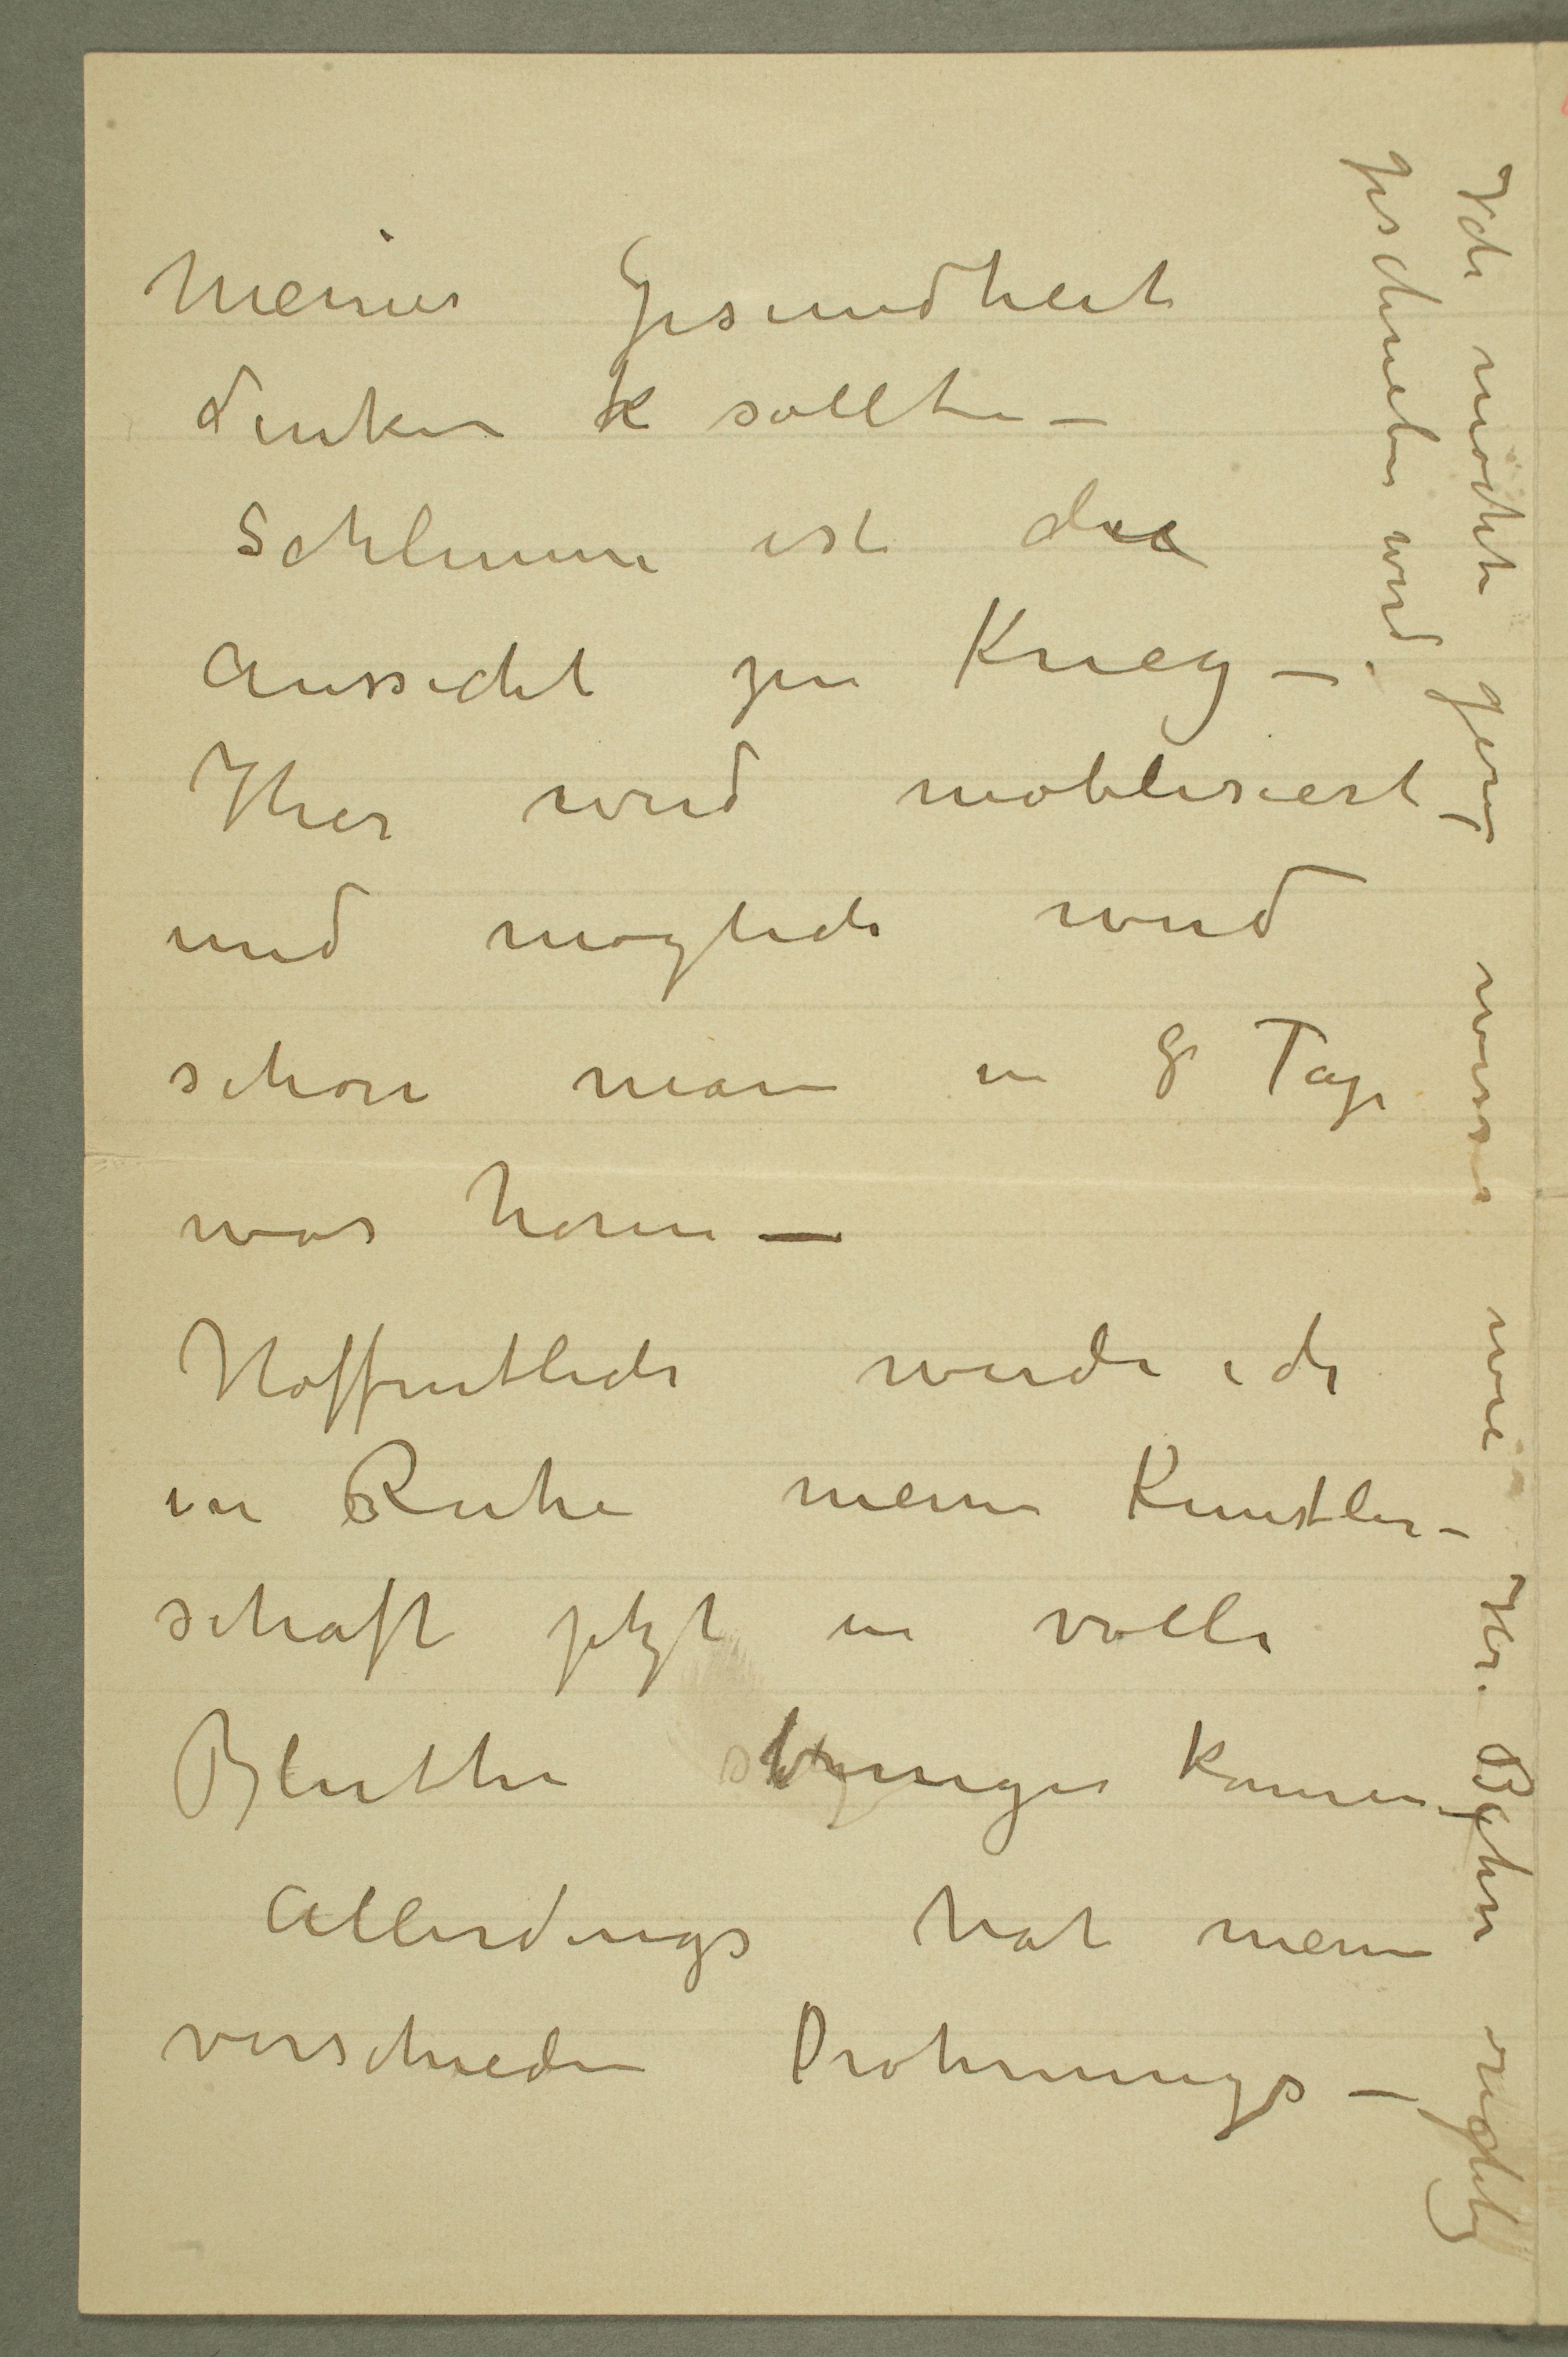 meiner Gesundheit
denken k sollte –
Schlimm ist die
Aussicht zu Krieg –
Hier wird moblisiert –
und moglich wird
schon man in 8 Tage
was horen –
Hoffentlich werde ich
in Ruhe meine Kunstler-
schaft jetzt in volle
Bluthe bringen konnen –
Allerdings hat meine
verschieden Drohnungs –
Ich mochte gern wissen wie Hr. Bahr richtig
geschrieben wird.